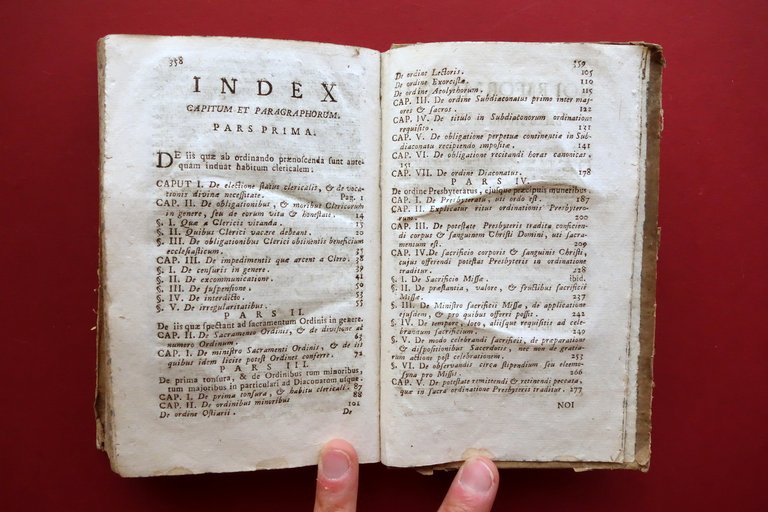 358
INDEX
CAPITUM ET PARAGRAPHORUM.
PARS PRIMA.
DE iis quæ ab ordinando prænoscenda sunt ante-
quam induat habitum clericalem.
CAPUT I. De electione status clericalis, & de voca-
tionis divinæ necessitate. Pag. 1
CAP. II. De obligationibus, & moribus Clericorum
in genere, seu de eorum vita & honestate. 14
§. I. Quæ a Clericis vitanda. 15
§. II. Quibus Clerici vacare debeant. 20
§. III. De obligationibus Clerici obtinentis beneficium
ecclesiasticum. 35
CAP. III. De impedimentis quæ arcent a Clero. 38
§. I. De censuris in genere. 39
§. II. De excommunicatione. 41
§. III. De suspensione. 50
§. IV. De interdicto. 53
§. V. De irregularitatibus. 55
PARS II.
De iis quæ spectant ad sacramentum Ordinis in genere.
CAP. II. De Sacramento Ordinis, & de divisione ac
numero Ordinum. 63
CAP. I. De ministro Sacramenti Ordinis, & de iis
quibus idem licite potest Ordinet conferre. 72
PARS III.
De prima tonsura, & de Ordinibus tum minoribus,
tum majoribus in particulari ad Diaconatum usque.
CAP. I. De prima tonsura, & habitu clericali. 87
CAP. II. De ordinibus minoribus 88
De ordine Ostiarii. 101
De
359
De ordine Lectoris. 105
De ordine Exorcistæ. 110
De ordine Acolythorum. 115
CAP. III. De ordine Subdiaconatus primo inter maj-
ores & sacros. 122
CAP. IV. De titulo in Subdiaconorum ordinatione
requisito. 131
CAP. V. De obligatione perpetuæ continentiæ in Sub-
diaconatu recipiendo imposita. 141
CAP. VI. De obligatione recitandi horas canonicas.
151
CAP. VII. De ordine Diaconatus. 178
PARS IV.
De ordine Presbyteratus, ejusque præcipuis muneribus.
CAP. I. De Presbyteratu, uti ordo est. 187
CAP. II. Explicatur ritus ordinationis Presbytero-
rum. 200
CAP. III. De potestate Presbyteris tradita conficien-
di corpus & sanguinem Christi Domini, uti sacra-
mentum est. 209
CAP. IV. De sacrificio corporis & sanguinis Christi,
cujus offerendi potestas Presbyteris in ordinatione
traditur. 228
§. I. De Sacrificio Missæ. ibid.
§. II. De præstantia, valore, & fructibus sacrificii
Missæ. 237
§. III. De Ministro sacrificii Missæ, de applicatione
ejusdem, & pro quibus offerri possit. 242
§. IV. De tempore, loco, aliisque requisitis ad cele-
brandum sacrificium. 249
§. V. De modo celebrandi sacrificii, de præparatione
& dispositionibus Sacerdotis, nec non de gratia-
rum actione post celebrationem. 253
§. VI. De observandis circa stipendium seu eleemo-
syna pro Missis. 266
CAP. V. De potestate remittendi & retinendi peccata,
quæ in sacra ordinatione Presbyteris traditur. 277
NOI